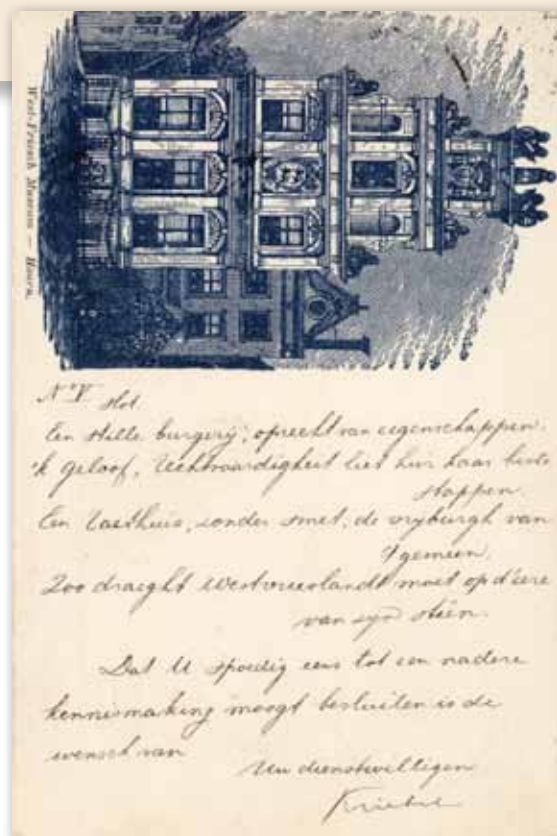 West-Friesch Museum — Hoorn.
N° V Slot.
Een stille burgerij, oprecht van eegenschappen.
'k Geloof, Rechtvaardigheit liet hier haar
stappen.
Een Raethuis, sonder smet, de vryburgh van
't gemeen,
Zoo draeght Westvrieslandt moet op d'eere
van syn steên.
Dat U spoedig eens tot een nadere
kennismaking moogt besluiten is de
wensch van
Uw dienstwilligen